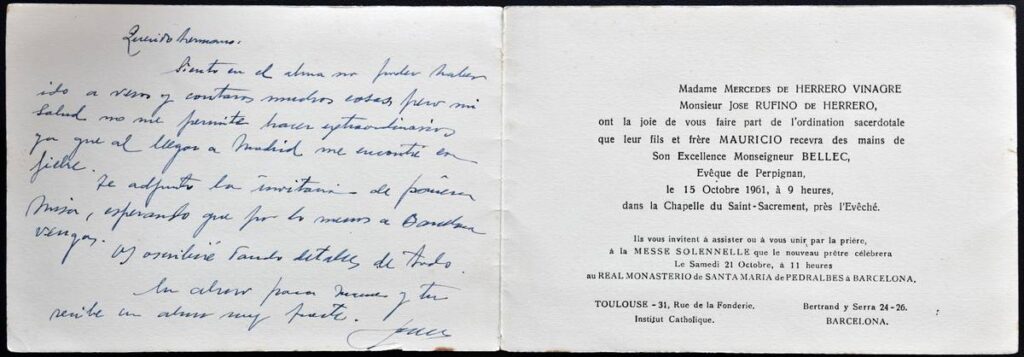 Querido hermano:
Siento en el alma no poder haber
ido a veros y contaros muchas cosas, pero mi
salud no me permite hacer extraordinarios
ya que al llegar a Madrid me encontré con
fiebre.
Te adjunto la invitación de primera
Misa, esperando que por lo menos a Barcelona
vengas.
Os escribiré dando detalles de todo.
Un abrazo para y tu
recibe un abrazo muy fuerte.
Madame MERCEDES DE HERRERO VINAGRE
Monsieur JOSE RUFINO DE HERRERO,
ont la joie de vous faire part de l'ordination sacerdotale
que leur fils et frère MAURICIO recevra des mains de
Son Excellence Monseigneur BELLEC,
Evêque de Perpignan,
le 15 Octobre 1961, à 9 heures,
dans la Chapelle du Saint-Sacrement, près l'Evêché.
Ils vous invitent à assister ou à vous unir par la prière,
à la MESSE SOLENNELLE que le nouveau prêtre célébrera
Le Samedi 21 Octobre, à 11 heures
au REAL MONASTERIO de SANTA MARIA de PEDRALBES à BARCELONA.
TOULOUSE - 31, Rue de la Fonderie. Bertrand y Serra 24-26.
Institut Catholique. BARCELONA.